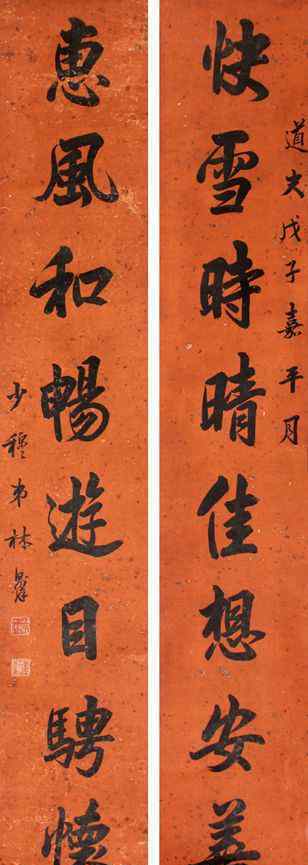 道光戊子嘉平月
快雪時晴佳想安善
惠風和暢遊目騁懷
少穆弟林則徐